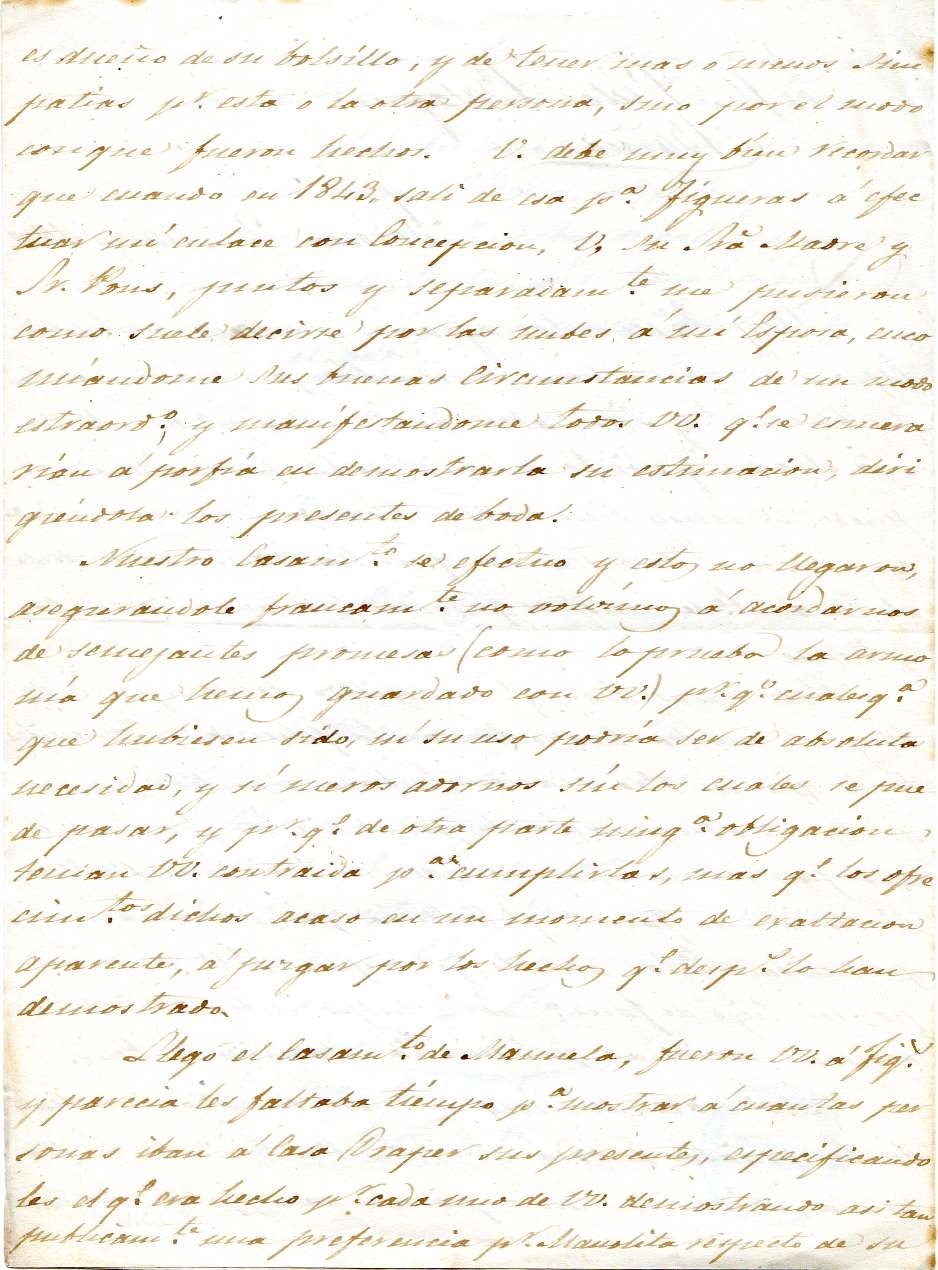 es dueño de su bolsillo, y de tener mas ó menos sim
patias pr. esta o la otra persona, sino por el modo
conque fueron hechos. V. debe muy bien recordar
que cuando en 1843, sali de esa pa. Figueras á efec
tuar mi enlace con Concepcion, V, su Sra. Madre y
Sr. Pons, juntos y separadamte. me pusieron
como suele decirse por las nubes á mi Esposa, enco
miándome sus buenas circunstancias de un modo
estraordo. y manifestandome todos VV. qe. se esmera
rian á porfia en demostrarla su estimacion, diri
giéndola los presentes de boda.
Nuestro Casamto. se efectuo y estos no llegaron,
asegurandole francamte. no volvimos á acordarnos
de semejantes promesas (como lo prueba la armo
nia que hemos guardado con VV.) pr. qe. cualesqa.
que hubiesen sido, ni su uso podria ser de absoluta
necesidad, y si meros adornos sin los cuales se pue
de pasar, y pr. qe. de otra parte ninga. obligacion
tenian VV. contraida pa. cumplirlas, mas qe. los ofre
cimtos. dichos acaso en un momento de exaltacion
aparente, á juzgar por los hechos qe. desps. lo han
demostrado.
Llegó el Casamto. de Manuela, fueron VV. á Figs.
y parecia les faltaba tiempo pa. mostrar á cuantas per
sonas iban á Casa Draper sus presentes, especificando
les el qe. era hecho pr. cada uno de VV. demostrando asi tan
publicamte. una preferencia pr. Manolita respecto de su